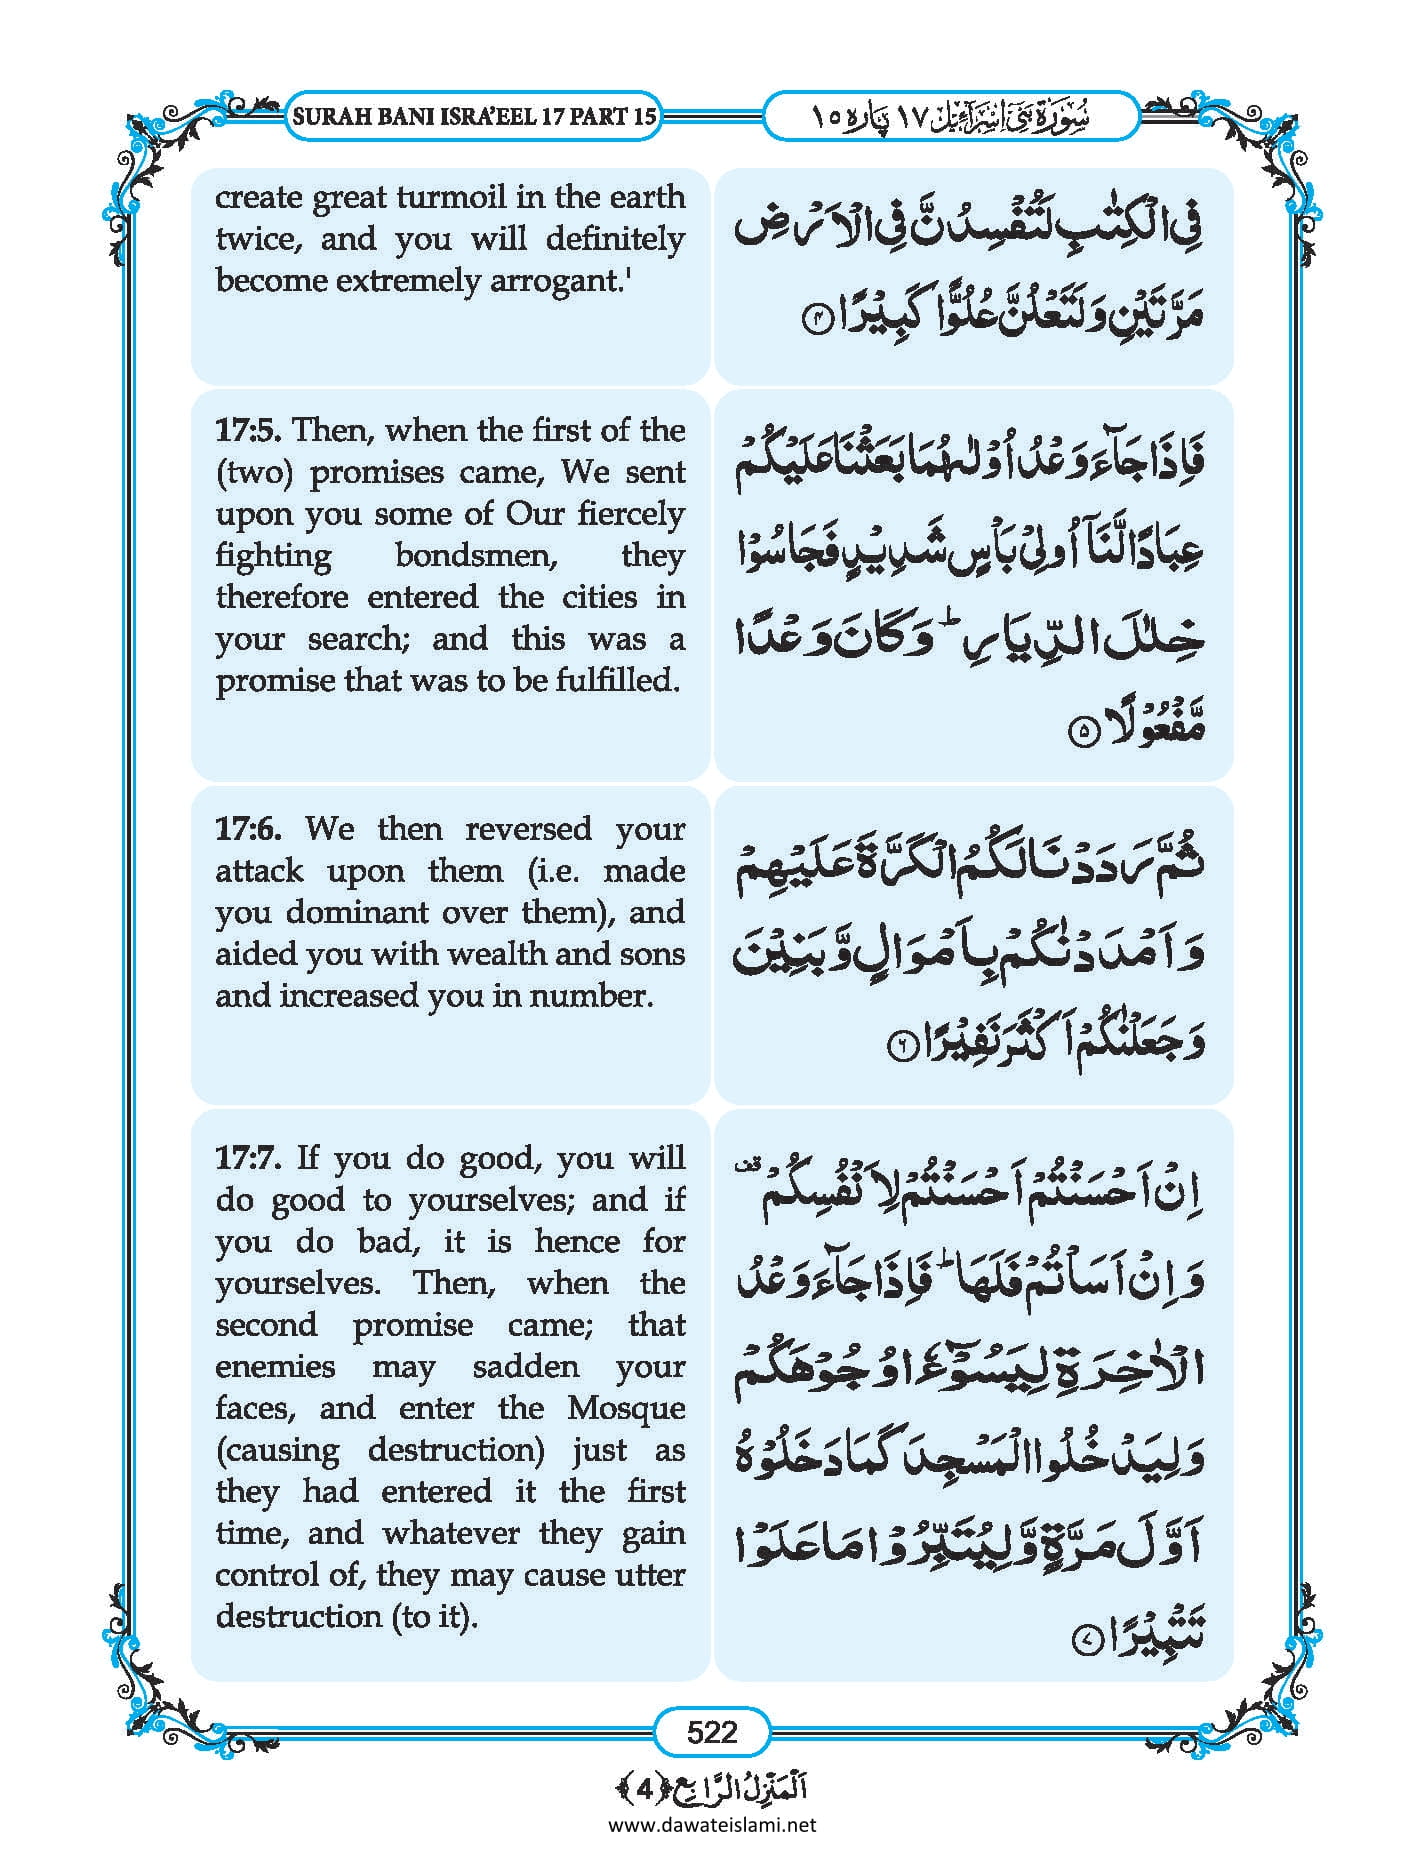 SURAH BANI ISRA’EEL 17 PART 15
سُوْرَةُ بَنِیْٓ اِسْرَآءِیْل ١٧ پارہ ١٥
create great turmoil in the earth
twice, and you will definitely
become extremely arrogant.'
فِی الْكِتٰبِ لَتُفْسِدُنَّ فِی الْاَرْضِ
مَرَّتَیْنِ وَ لَتَعْلُنَّ عُلُوًّا كَبِیْرًا ﴿۴﴾
17:5. Then, when the first of the
(two) promises came, We sent
upon you some of Our fiercely
fighting bondsmen, they
therefore entered the cities in
your search; and this was a
promise that was to be fulfilled.
فَاِذَا جَآءَ وَعْدُ اُوْلٰىهُمَا بَعَثْنَا عَلَیْكُمْ
عِبَادًا لَّنَاۤ اُولِیْ بَاْسٍ شَدِیْدٍ فَجَاسُوْا
خِلٰلَ الدِّیَارِ ؕ وَ كَانَ وَعْدًا
مَّفْعُوْلًا ﴿۵﴾
17:6. We then reversed your
attack upon them (i.e. made
you dominant over them), and
aided you with wealth and sons
and increased you in number.
ثُمَّ رَدَدْنَا لَكُمُ الْكَرَّةَ عَلَیْهِمْ
وَ اَمْدَدْنٰكُمْ بِاَمْوَالٍ وَّ بَنِیْنَ
وَ جَعَلْنٰكُمْ اَكْثَرَ نَفِیْرًا ﴿۶﴾
17:7. If you do good, you will
do good to yourselves; and if
you do bad, it is hence for
yourselves. Then, when the
second promise came; that
enemies may sadden your
faces, and enter the Mosque
(causing destruction) just as
they had entered it the first
time, and whatever they gain
control of, they may cause utter
destruction (to it).
اِنْ اَحْسَنْتُمْ اَحْسَنْتُمْ لِاَنْفُسِكُمْ ۫
وَ اِنْ اَسَاْتُمْ فَلَهَا ؕ فَاِذَا جَآءَ وَعْدُ
الْاٰخِرَةِ لِیَسُوْٓءٗا وُجُوْهَكُمْ
وَ لِیَدْخُلُوا الْمَسْجِدَ كَمَا دَخَلُوْهُ
اَوَّلَ مَرَّةٍ وَّ لِیُتَبِّرُوْا مَا عَلَوْا
تَتْبِیْرًا ﴿۷﴾
522
اَلْمَنْزِلُ الرَّابِع ﴿4﴾
www.dawateislami.net